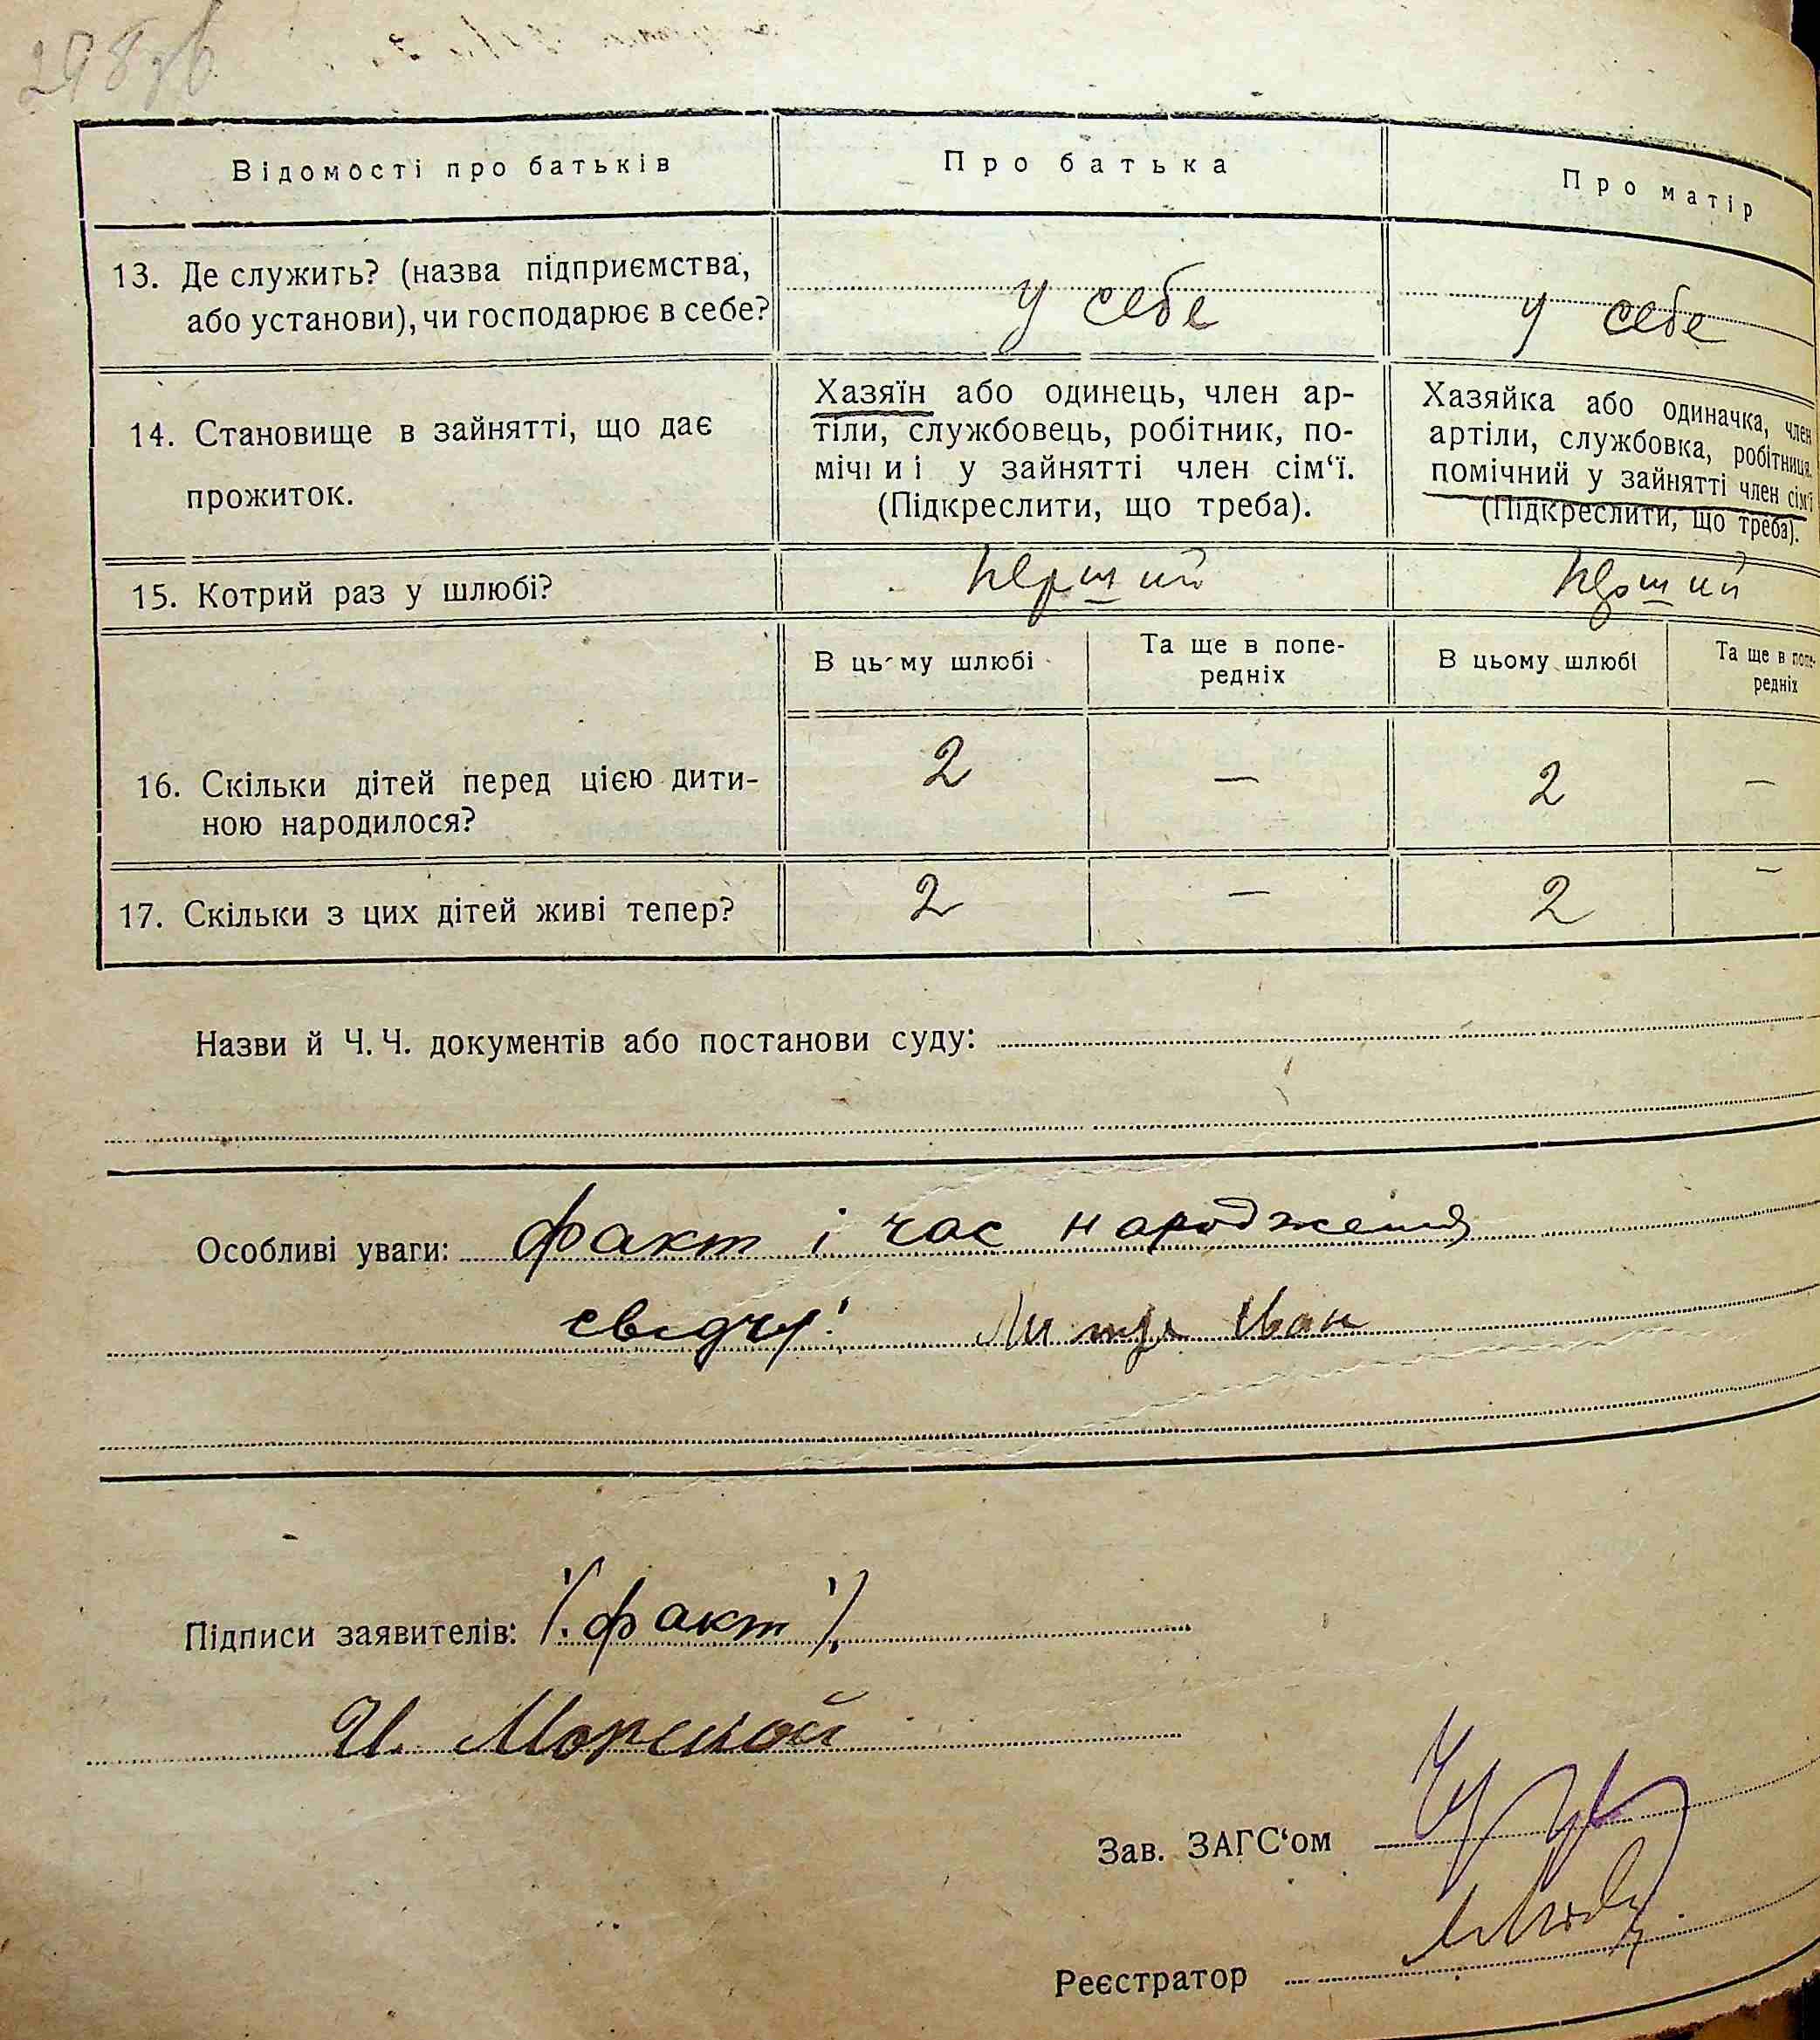 298 зв
Відомості про батьків
Про батька
Про матір
13. Де служить? (назва підприємства,
або установи), чи господарює в себе?
у себе
у себе
14. Становище в зайнятті, що дає
прожиток.
Хазяїн або одинець, член ар-
тіли, службовець, робітник, по-
мічний у зайнятті член сім‘ї.
(Підкреслити, що треба).
Хазяйка або одиначка, член
артіли, службовка, робітниця,
помічний у зайнятті член сім‘ї
(Підкреслити, що треба).
15. Котрий раз у шлюбі?
перший
перший
В цьому шлюбі
Та ще в попе-
редніх
В цьому шлюбі
Та ще в попе-
редніх
16. Скільки дітей перед цією дити-
ною народилося?
2
—
2
—
17. Скільки з цих дітей живі тепер?
2
—
2
—
Назви й Ч. Ч. документів або постанови суду:
Особливі уваги: факт і час народження
свідчу: Іван
Підписи заявителів: /факт/.
И. Морской
Зав. ЗАГС‘ом
Реєстратор